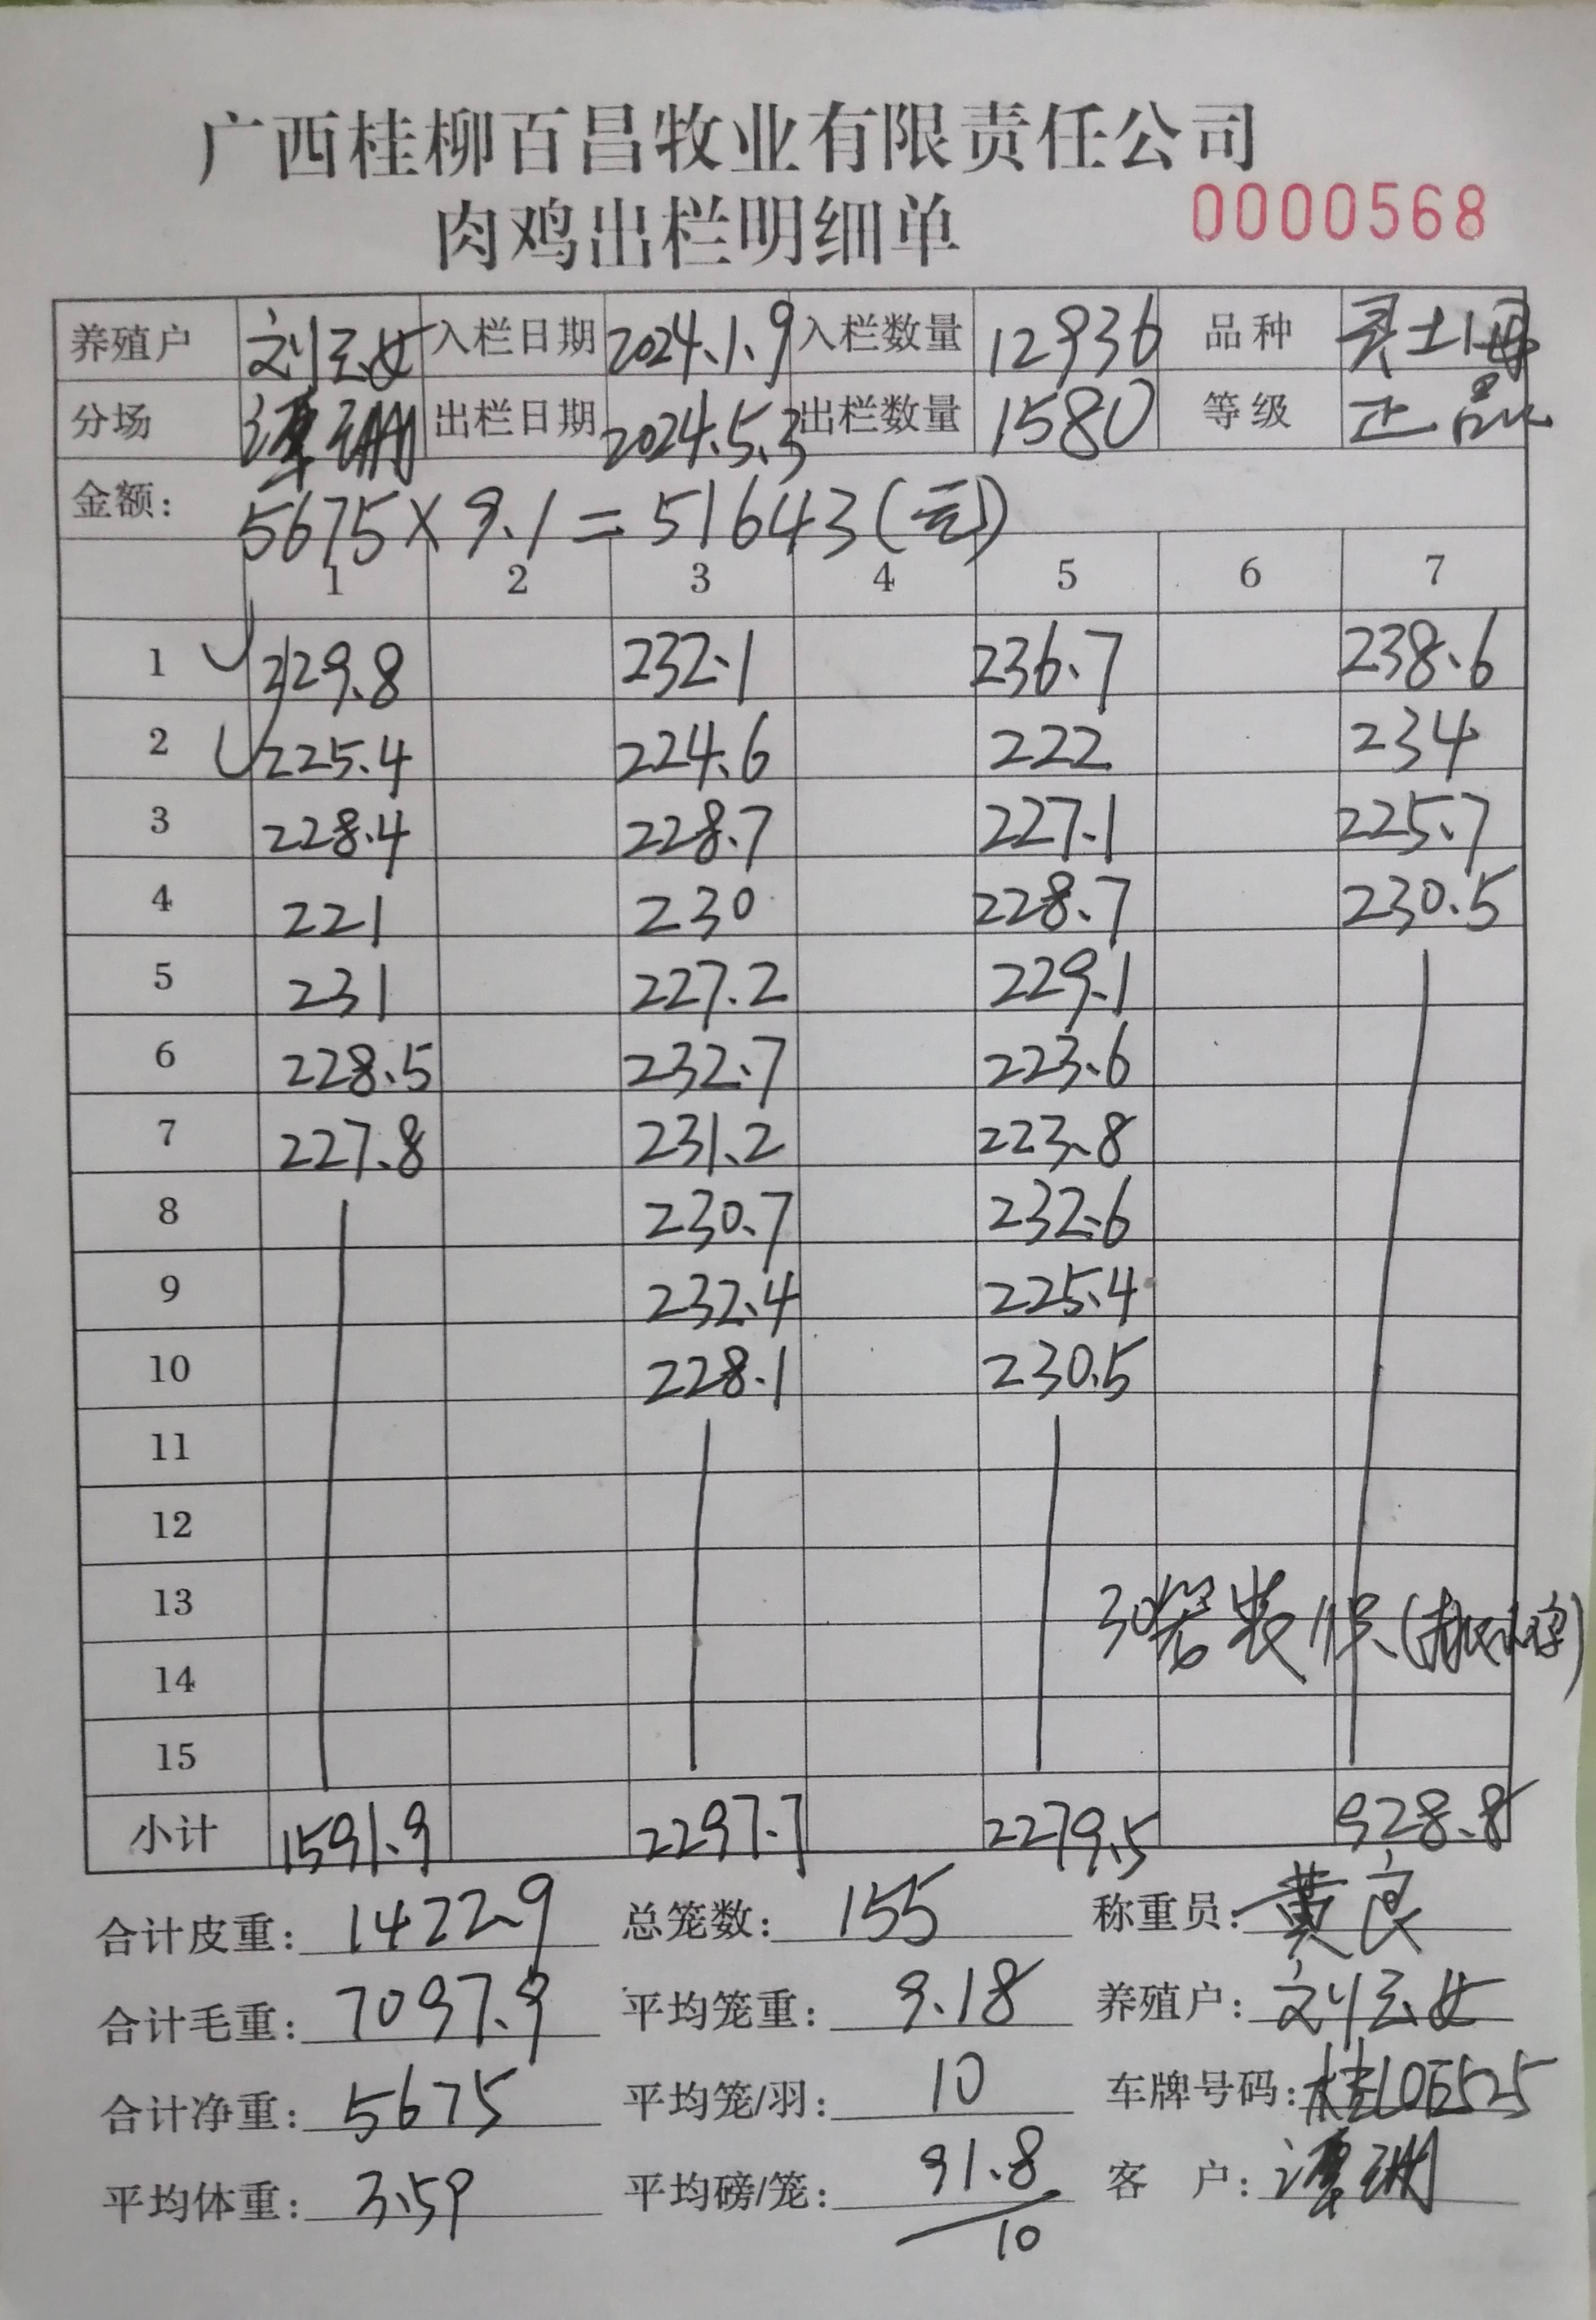 广西桂柳百昌牧业有限责任公司
肉鸡出栏明细单 0000568
养殖户 刘云女 入栏日期 2024.1.9 入栏数量 12936 品种 土
分场 谭洲 出栏日期 2024.5.3 出栏数量 1580 等级 正品
金额: 5675×9.1=51643(元)
1 2 3 4 5 6 7
1 229.8 232.1 236.7 238.6
2 225.4 224.6 222 234
3 228.4 228.7 227.1 225.7
4 221 230 228.7 230.5
5 231 227.2 229.1
6 228.5 232.7 223.6
7 227.8 231.2 223.8
8 230.7 232.6
9 232.4 225.4
10 228.1 230.5
11
12
13 30 装
14
15
小计 1591.9 2297.7 2279.5 928.8
合计皮重: 1422.9 总笼数: 155 称重员: 黄良
合计毛重: 7097.9 平均笼重: 9.18 养殖户: 刘云女
合计净重: 5675 平均笼/羽: 10 车牌号码: 桂L0E525
平均体重: 3.59 平均磅/笼: 91.8 客 户: 谭洲
10